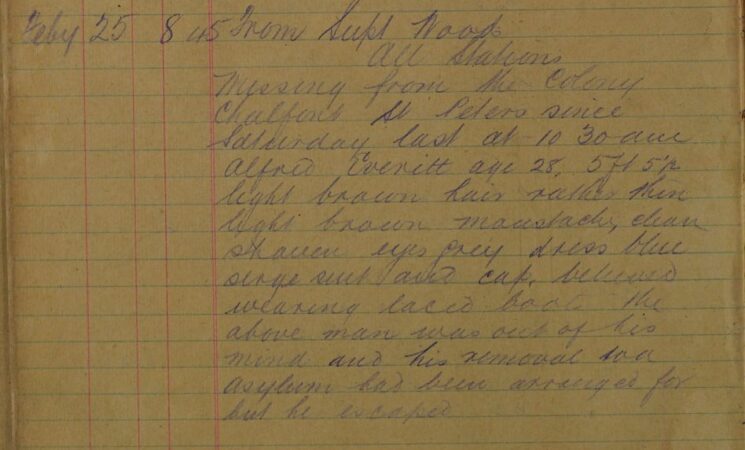 Feby 25 8 45 From Supt Woods
All Stations
Missing from the Colony
Chalfont St Peters since
Saturday last at 10 30 am
Alfred Everitt age 28, 5 ft 5½
light brown hair rather thin
light brown moustache, clean
shaven eyes grey dress blue
serge suit and cap, believed
wearing laced boots the
above man was out of his
mind and his removal to a
asylum had been arranged for
but he escaped